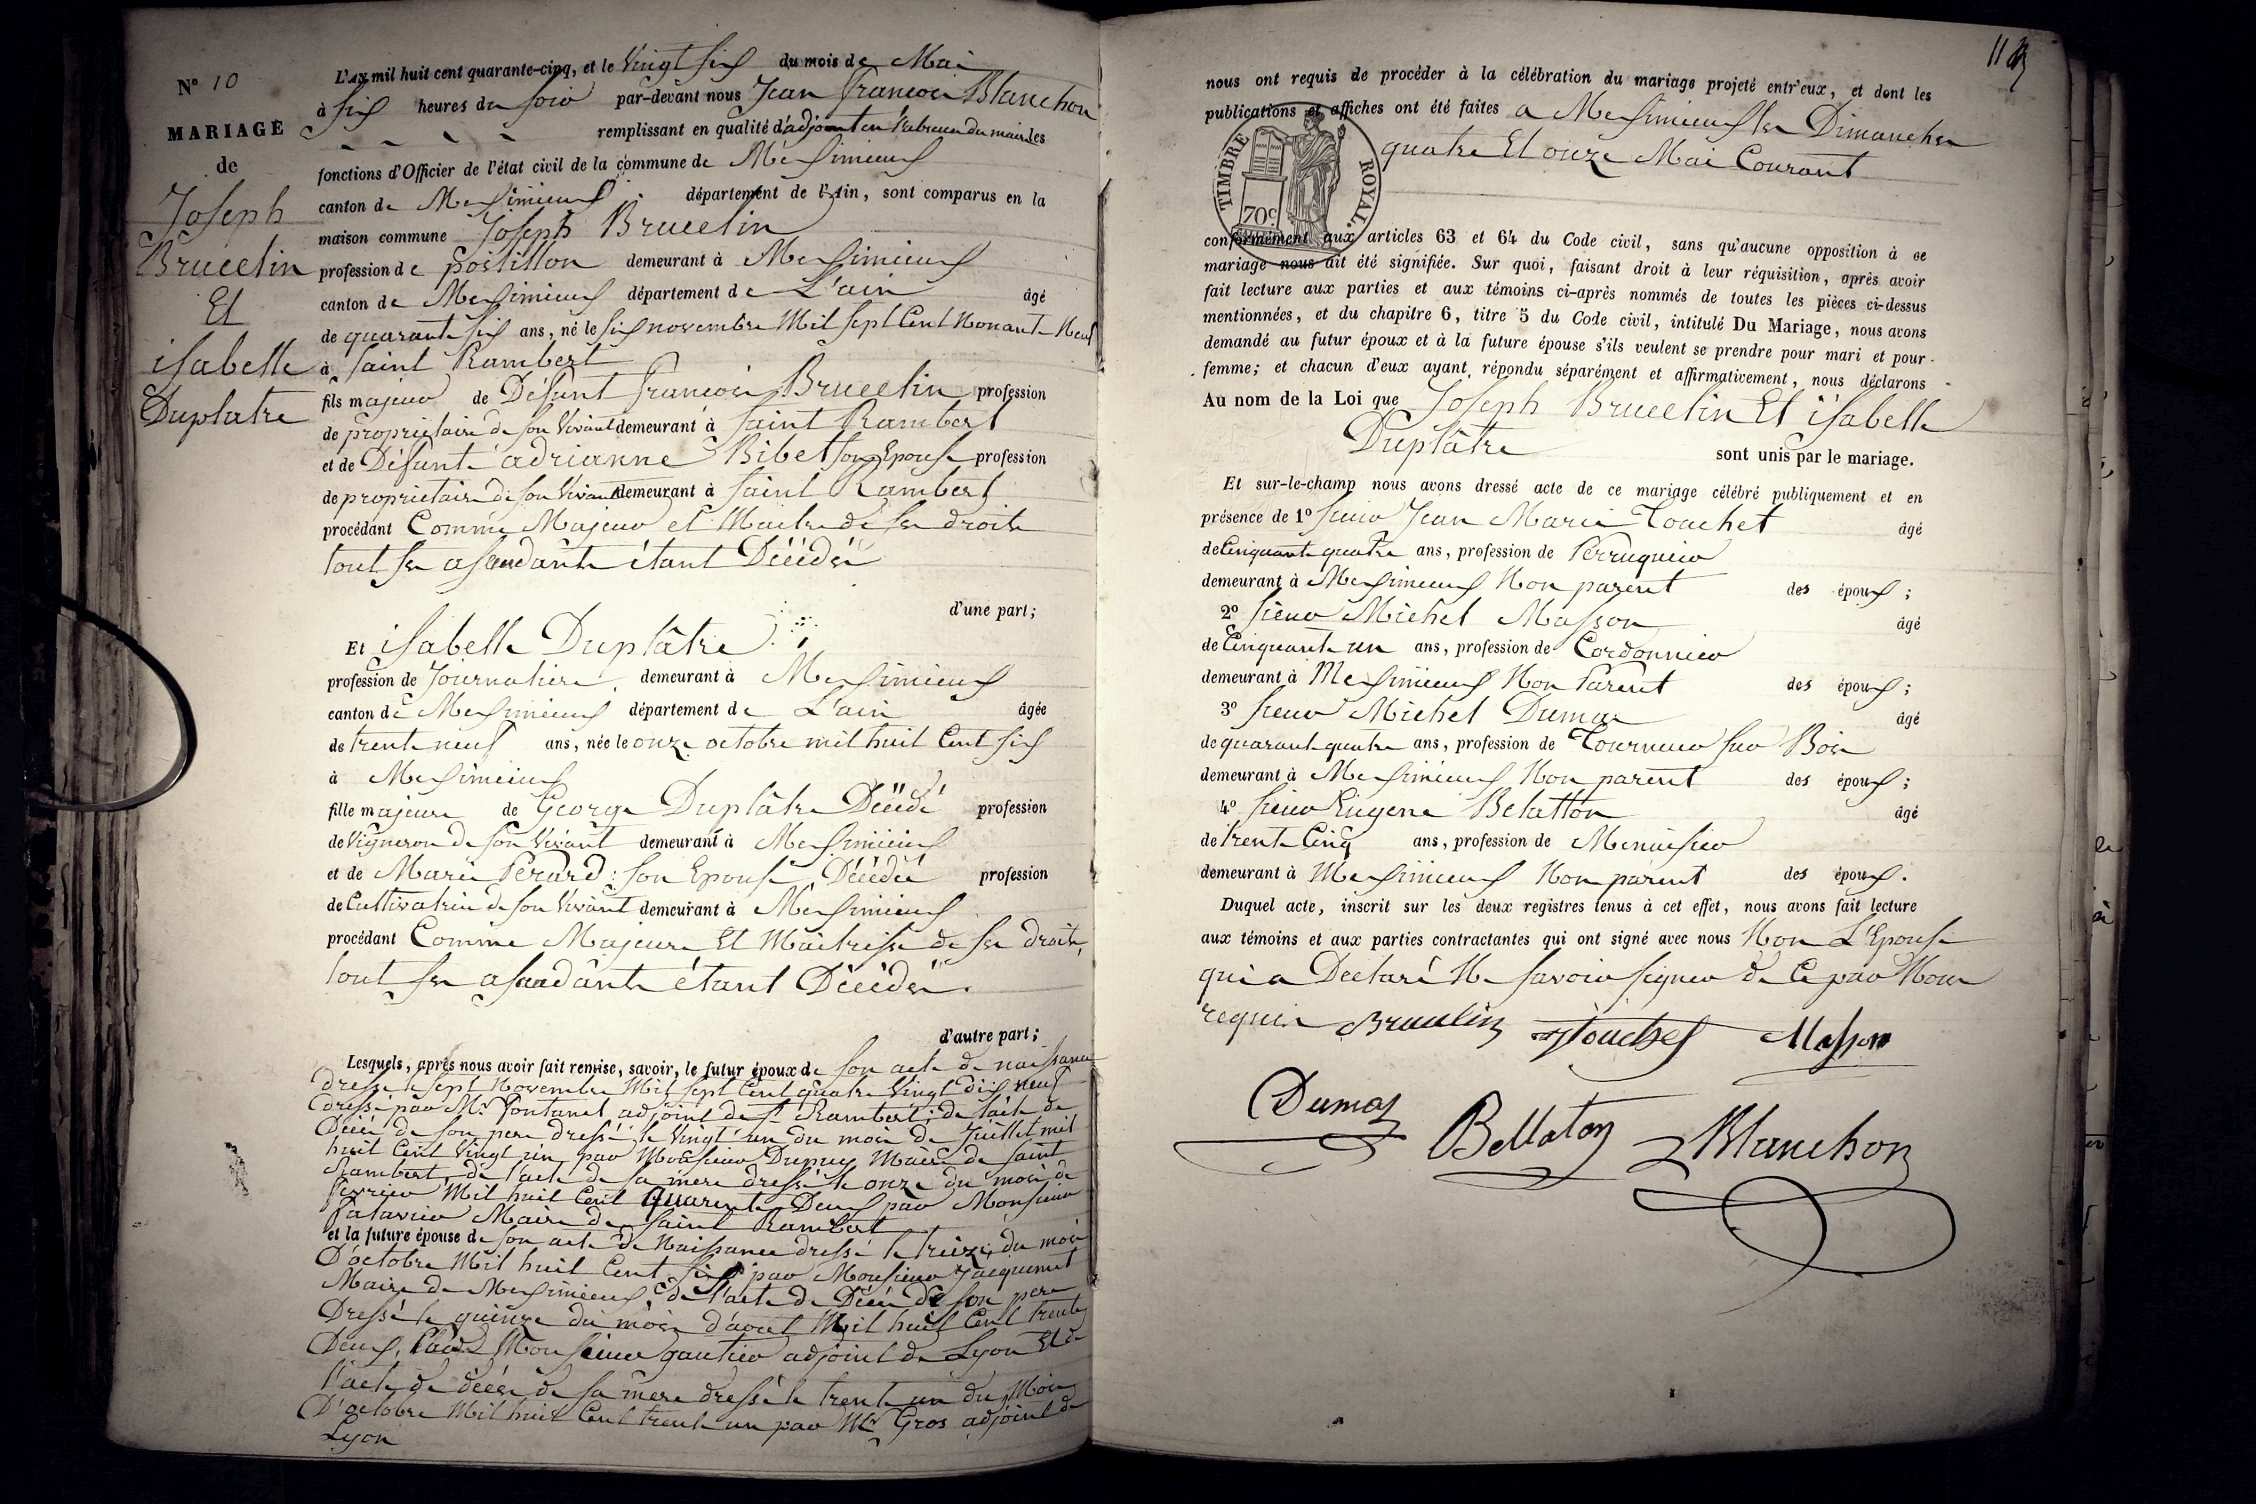 N° 10
MARIAGE
de
Joseph
Brucelin
Et
isabelle
Duplatre
L'An mil huit cent quarante-cinq, et le Vingt six du mois de Mai
à six heures du soir par-devant nous Jean francois Blanchon
remplissant en qualité d'adjoint en l'absence du maire les
fonctions d'Officier de l'état civil de la commune de Messimieux
canton de Messimieux département de l'Ain, sont comparus en la
maison commune Joseph Brucelin
profession de postillon demeurant à Messimieux
canton de Messimieux département de L'ain âgé
de quarante six ans, né le six novembre Mil sept Cent Nonante Neuf
à Saint Rambert
fils majeur de Défunt francois Brucelin profession
de propriétaire de son Vivant demeurant à Saint Rambert
et de Défunte adrianne Bibet son Epouse profession
de propriétaire de son Vivant demeurant à Saint Rambert
procédant Comme Majeur et Maitre de ses droits
tout ses asendants étant Décédés
d'une part;
Et isabelle Duplâtre
profession de Journaliere demeurant à Messimieux
canton de Messimieux département de L'ain âgée
de trente neuf ans, née le onze octobre mil huit Cent six
à Messimieux
fille majeure de George Duplâtre Décédé profession
de Vigneron de son Vivant demeurant à Messimieux
et de Marie Perard son Epouse Décédée profession
de Cultivatrice de son Vivant demeurant à Messimieux
procédant Comme Majeure Et Maitresse de ses droits,
tout ses asendants étant Décédés.
d'autre part;
Lesquels, après nous avoir fait remise, savoir, le futur époux de son acte de naissance
dressé le sept Novembre Mil sept Cent quatre Vingt dix neuf
dressé par Mr Fontanel adjoint de St Rambert; de l'acte de
Décés de son pere dressé le Vingt un du mois de Juillet mil
huit Cent Vingt un par Monsieur Dupuy Maire de Saint
Rambert, de l'acte de sa mere dressé le onze du mois de
fevrier Mil huit Cent Quarente Deux par Monsieur
Maire de Saint Rambert
et la future épouse de son acte de Naissance dressé le treize du mois
D'octobre Mil huit Cent six par Monsieur Jacquemet
Maire de Messimieux, de l'acte de Décés de son pere
Dressé le quinze du mois d'aout Mil huit Cent trente
Deux, Monsieur gautier adjoint de Lyon Et de
l'acte de décés de sa mere dressé le trente un du Mois
D'octobre Mil huit Cent trente un par Mr Gros adjoint de
Lyon
nous ont requis de procéder à la célébration du mariage projeté entr'eux, et dont les
publications et affiches ont été faites a Messimieux les Dimanches
quatre Et onze Mai Courant
TIMBRE ROYAL.
70c
conformément aux articles 63 et 64 du Code civil, sans qu'aucune opposition à ce
mariage nous ait été signifiée. Sur quoi, faisant droit à leur réquisition, après avoir
fait lecture aux parties et aux témoins ci-après nommés de toutes les pièces ci-dessus
mentionnées, et du chapitre 6, titre 5 du Code civil, intitulé Du Mariage, nous avons
demandé au futur époux et à la future épouse s'ils veulent se prendre pour mari et pour
femme; et chacun d'eux ayant répondu séparément et affirmativement, nous déclarons
Au nom de la Loi que Joseph Brucelin Et isabelle
Duplâtre
sont unis par le mariage.
Et sur-le-champ nous avons dressé acte de ce mariage célébré publiquement et en
présence de 1° sieur Jean Marie Touchet âgé
de Cinquante quatre ans, profession de Perruquier
demeurant à Messimieux Non parent des époux;
2° sieur Michel Masson âgé
de Cinquante un ans, profession de Cordonnier
demeurant à Messimieux Non Parent des époux;
3° sieur Michel Dumas âgé
de quarante quatre ans, profession de Tourneur sur Bois
demeurant à Messimieux Non parent des époux;
4° sieur Eugene Belatton âgé
de trente Cinq ans, profession de Menuisier
demeurant à Messimieux Non parent des époux.
Duquel acte, inscrit sur les deux registres tenus à cet effet, nous avons fait lecture
aux témoins et aux parties contractantes qui ont signé avec nous Non L'Epouse
qui a Declaré Ne savoir signer de Ce par Nous
requis Brucelin Touchet Masson
Dumas Bellaton Blanchon